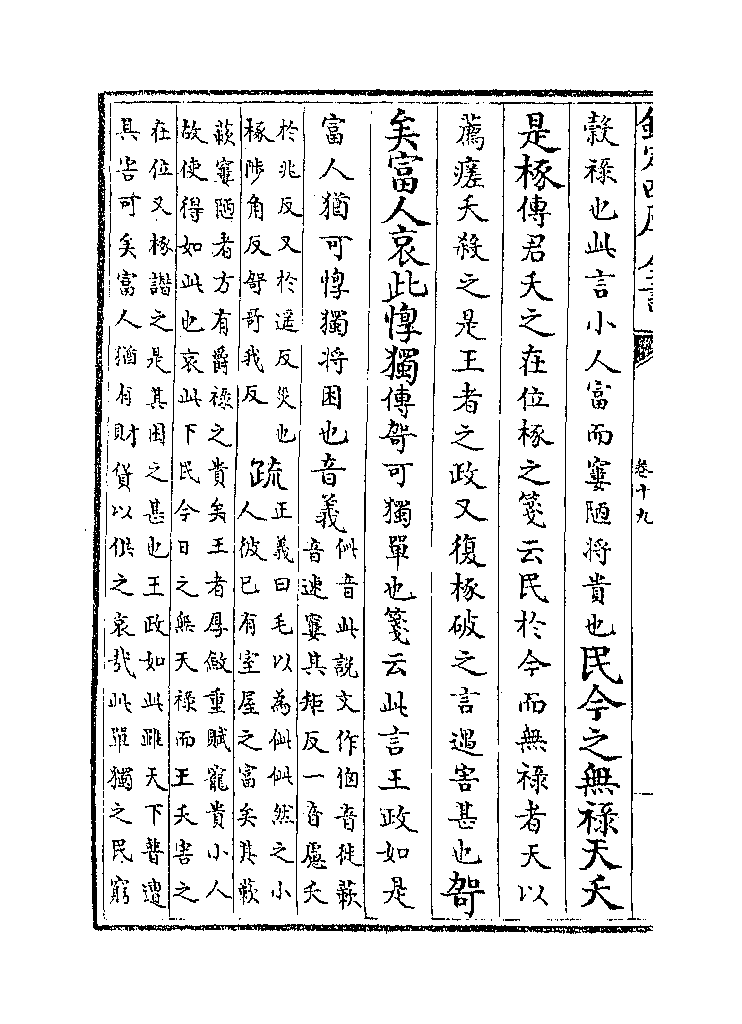 欽定四庫全書
卷十九
穀祿也此言小人富而窶陋將貴也民今之無祿天夭
是椓傳君夭之在位椓之箋云民於今而無祿者天以
薦瘥夭殺之是王者之政又復椓破之言遇害甚也哿
矣富人哀此惸獨傳哿可獨單也箋云此言王政如是
富人猶可惸獨將困也音義
佌音此說文作音徙蔌
音速窶其矩反一音慮夭
於兆反又於遥反災也
椓陟角反哿哥我反
疏
正義曰毛以為佌佌然之小
人彼已有室屋之富矣其蔌
蔌窶陋者方有爵祿之貴矣王者厚斂重賦寵貴小人
故使得如此也哀此下民今日之無天祿而王夭害之
在位又椓譖之是其困之甚也王政如此雖天下普遭
其害可矣富人猶有財貨以供之哀哉此單獨之民窮